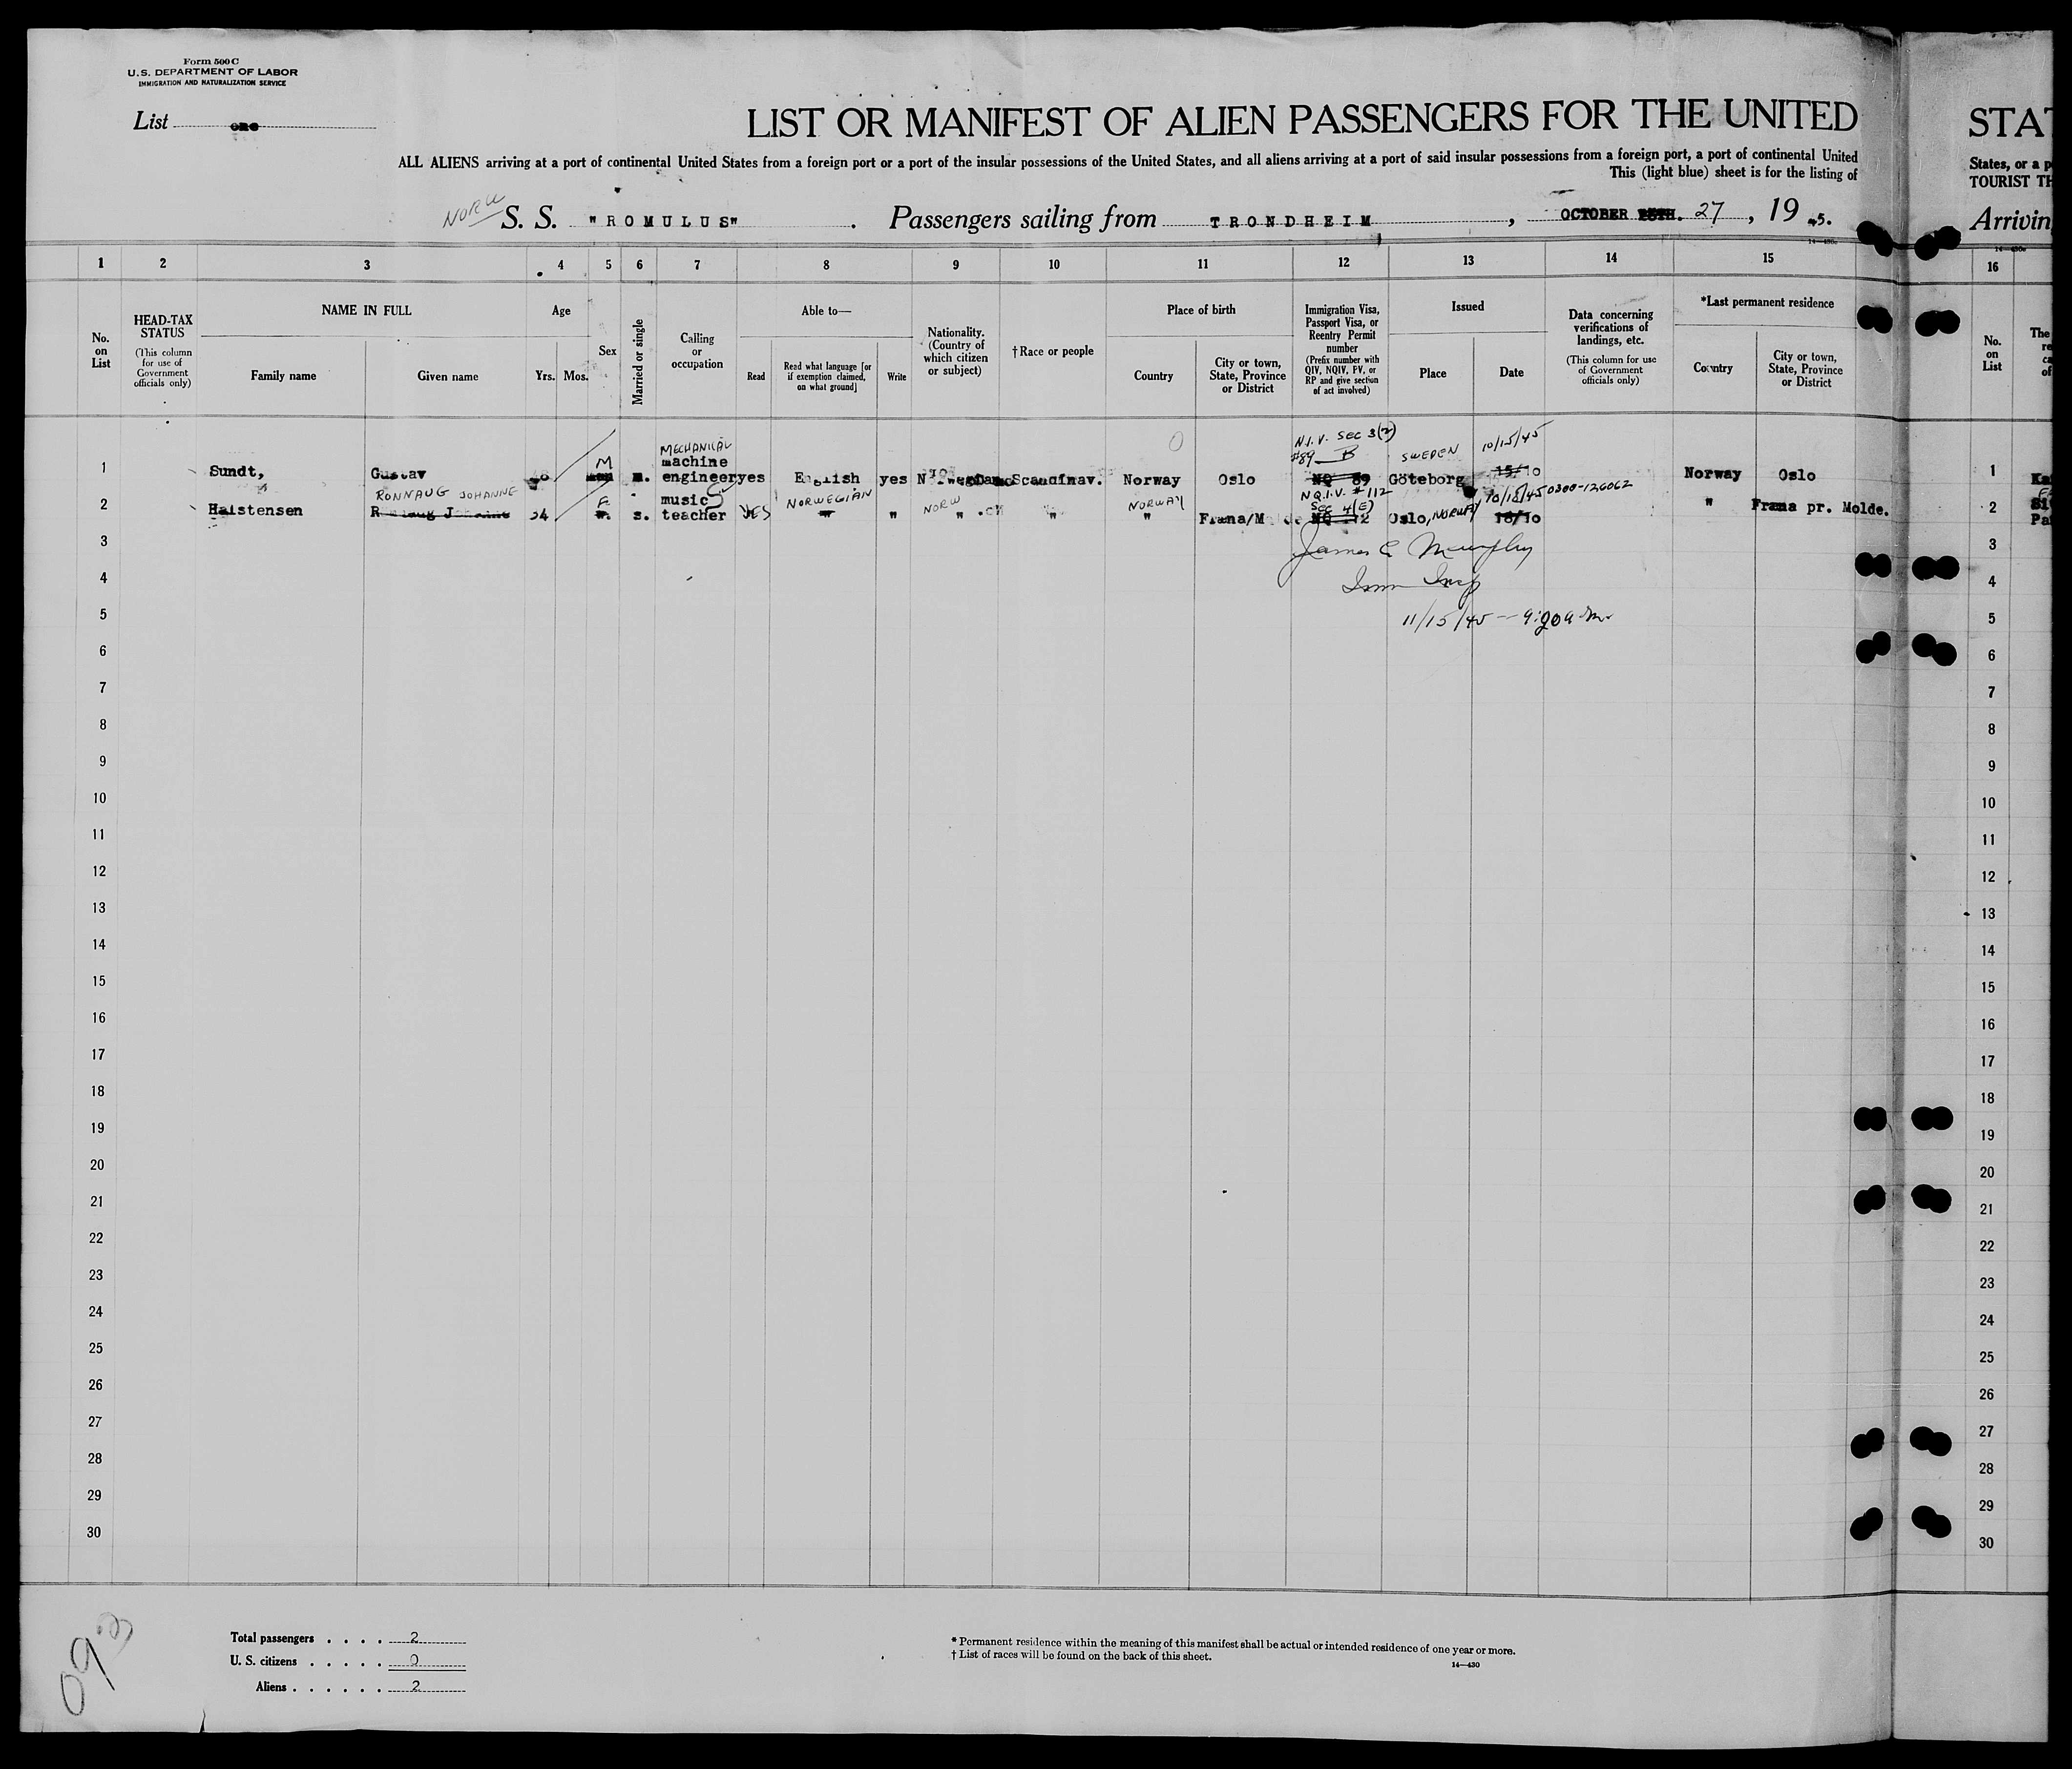 Form 500 C
U.S. DEPARTMENT OF LABOR
IMMIGRATION AND NATURALIZATION SERVICE
List one
LIST OR MANIFEST OF ALIEN PASSENGERS FOR THE UNITED
ALL ALIENS arriving at a port of continental United States from a foreign port or a port of the insular possessions of the United States, and all aliens arriving at a port of said insular possessions from a foreign port, a port of continental United
This (light blue) sheet is for the listing of
NORW S. S. "ROMULUS". Passengers sailing from TRONDHEIM, OCTOBER 27, 1945.
14—430
STAT
States, or a p
TOURIST TH
Arriving
1 2 3 4 5 6 7 8 9 10 11 12 13 14 15 16
No. on List
HEAD-TAX STATUS
(This column for use of Government officials only)
NAME IN FULL
Family name
Given name
Age
Yrs.
Mos.
Sex
Married or single
Calling or occupation
Able to—
Read
Read what language [or if exemption claimed, on what ground]
Write
Nationality. (Country of which citizen or subject)
†Race or people
Place of birth
Country
City or town, State, Province or District
Immigration Visa, Passport Visa, or Reentry Permit number
(Prefix number with QIV, NQIV, PV, or RP and give section of act involved)
Issued
Place
Date
Data concerning verifications of landings, etc.
(This column for use of Government officials only)
*Last permanent residence
Country
City or town, State, Province or District
No. on List
MECHANICAL N.I.V. SEC 3(2) SWEDEN 10/15/45
1 Sundt, Gustav M m. machine engineer yes English yes Scandinav. Norway Oslo #89 B NQ 89 Göteborg 15/10 Norway Oslo 1
RONNAUG JOHANNE F NORWEGIAN NORW NORWAY N.Q.I.V. #112 10/18/45 0300-126062
2 Haistensen 34 s. music teacher YES " " " " Sec 4(E) NQ 112 Oslo, NORWAY 18/10 " Fræna pr. Molde. 2
James E Murphy
Imm Insp
11/15/45 — 9:20 a.m.
3 3
4 4
5 5
6 6
7 7
8 8
9 9
10 10
11 11
12 12
13 13
14 14
15 15
16 16
17 17
18 18
19 19
20 20
21 21
22 22
23 23
24 24
25 25
26 26
27 27
28 28
29 29
30 30
Total passengers . . . . 2
U. S. citizens . . . . . 0
Aliens . . . . . . 2
* Permanent residence within the meaning of this manifest shall be actual or intended residence of one year or more.
† List of races will be found on the back of this sheet.
14—430